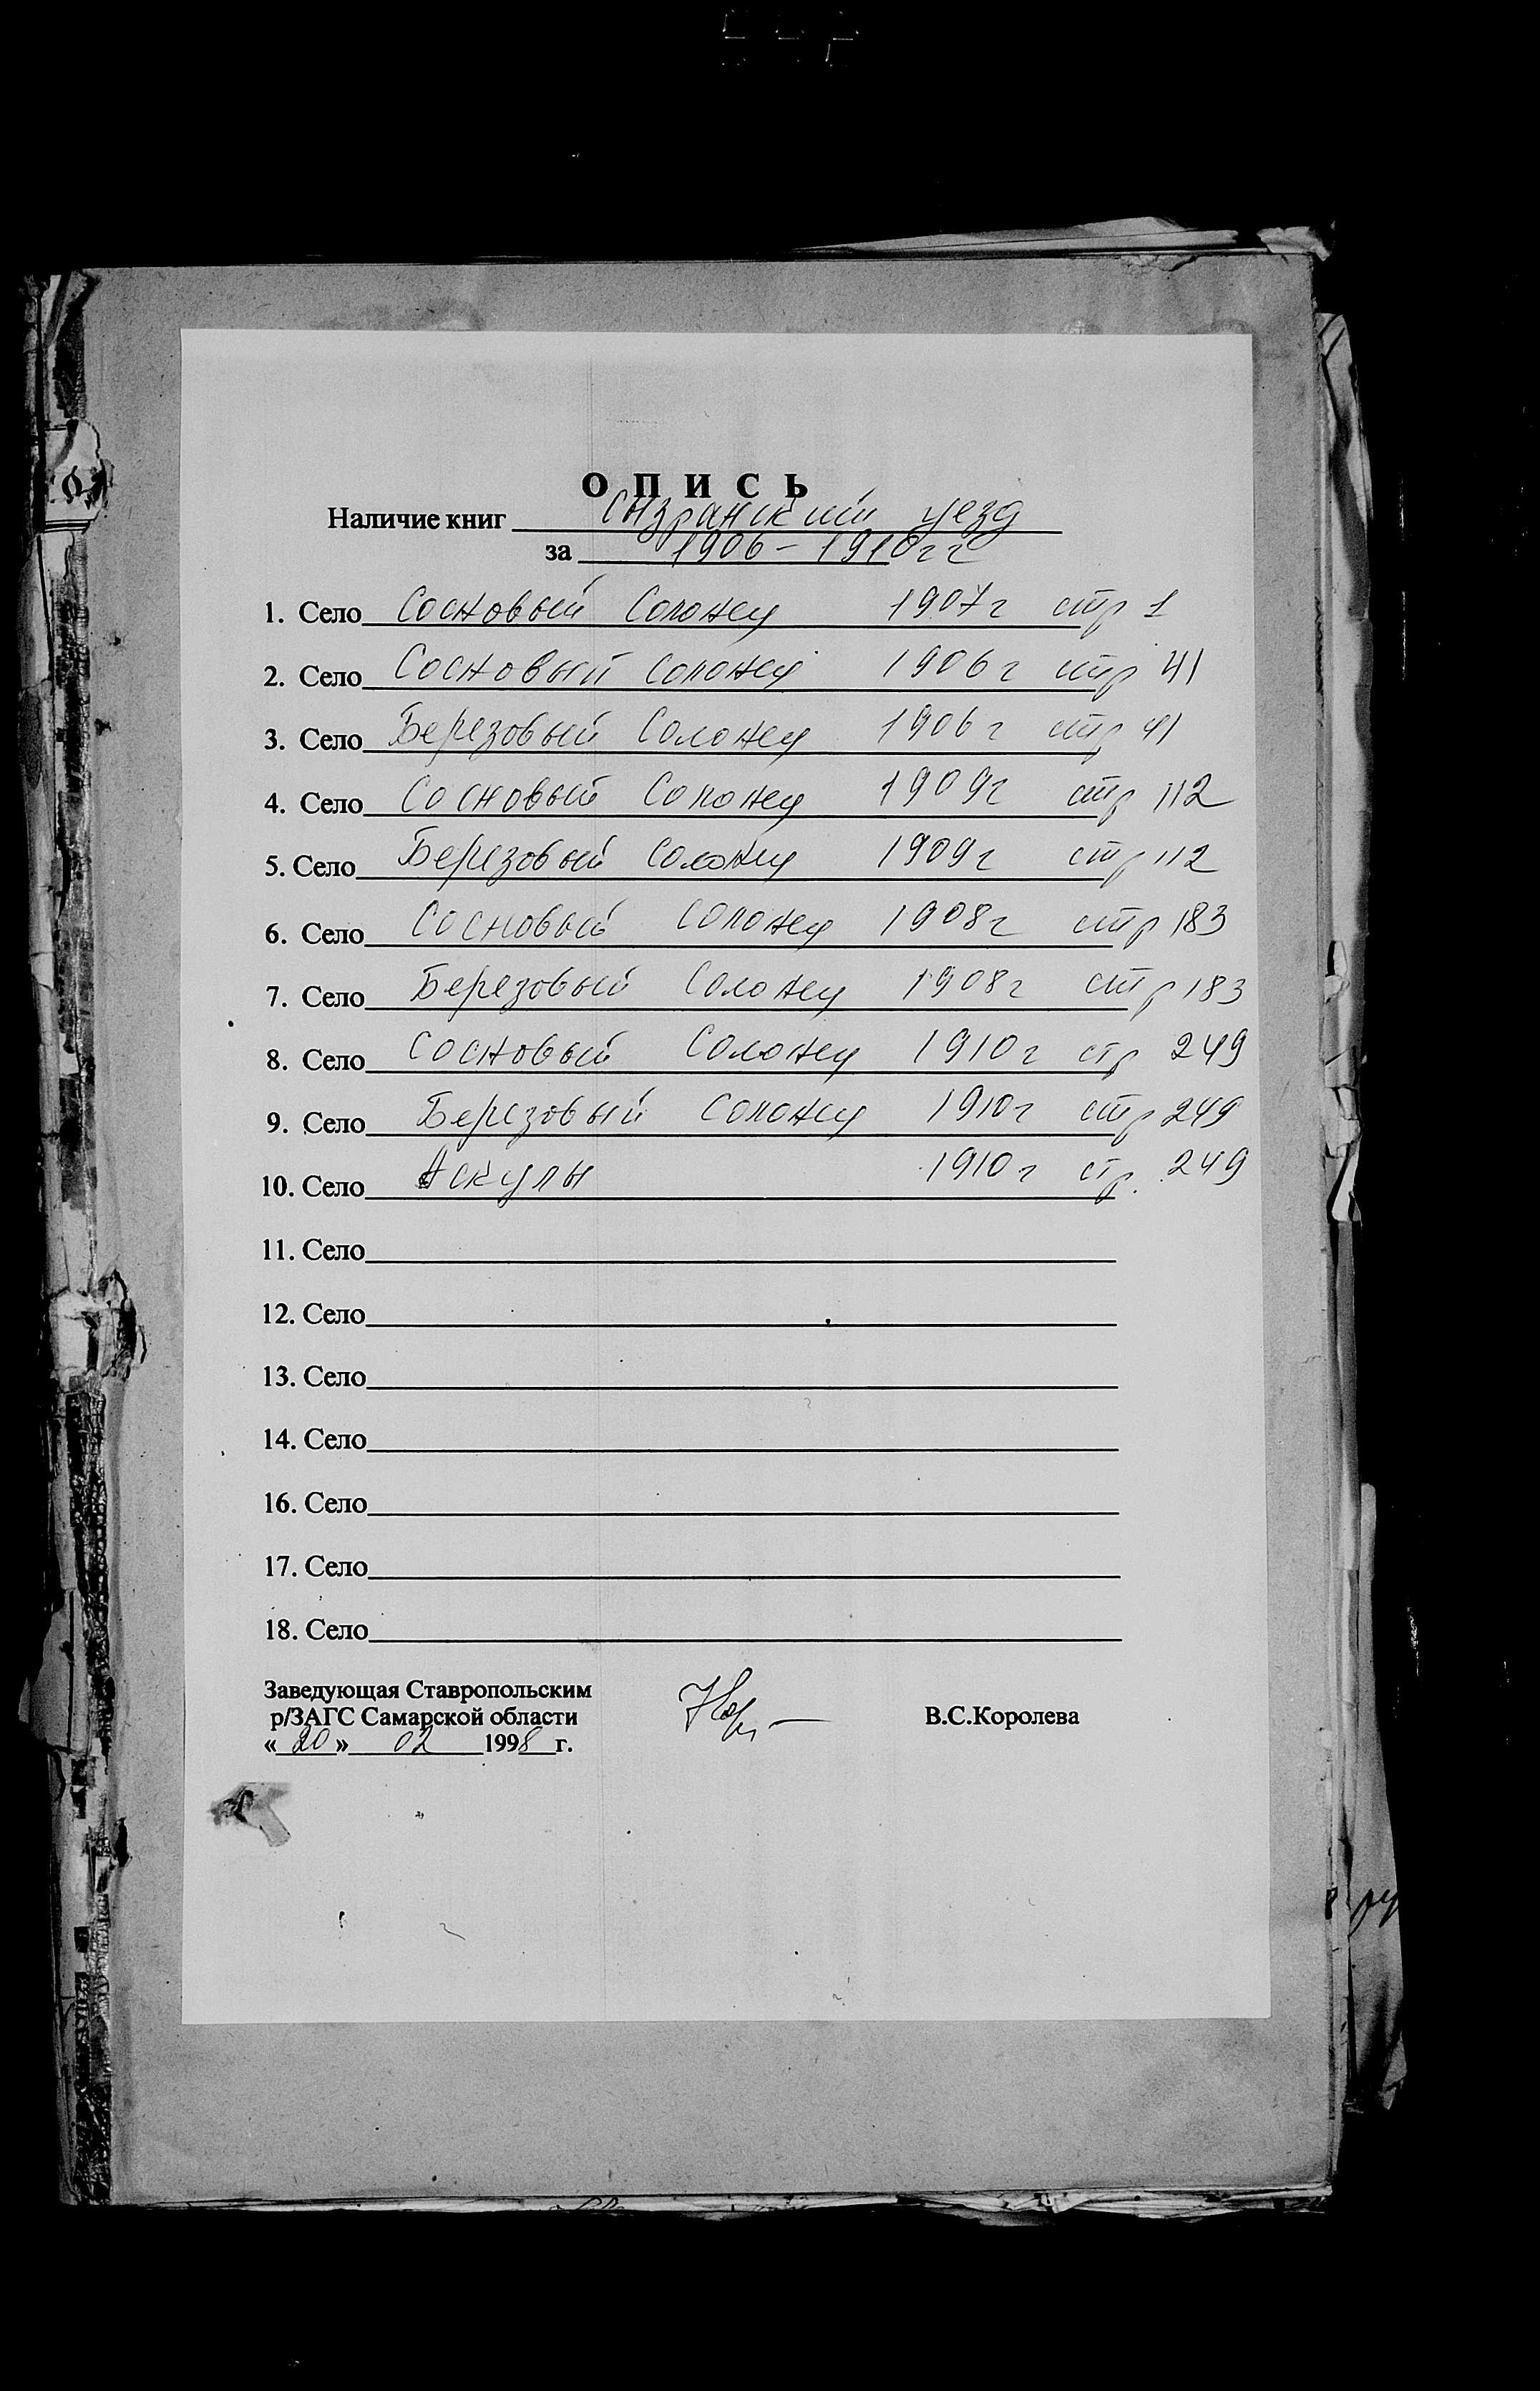 О П И С Ь
Наличие книг Сызранский уезд
за 1906 - 1910 гг
1. Село Сосновый Солонец 1907г стр 1
2. Село Сосновый Солонец 1906г стр 41
3. Село Березовый Солонец 1906г стр 41
4. Село Сосновый Солонец 1909г стр 112
5. Село Березовый Солонец 1909г стр 112
6. Село Сосновый Солонец 1908г стр 183
7. Село Березовый Солонец 1908г стр 183
8. Село Сосновый Солонец 1910г стр 249
9. Село Березовый Солонец 1910г стр 249
10. Село Аскулы 1910г стр. 249
11. Село
12. Село
13. Село
14. Село
16. Село
17. Село
18. Село
Заведующая Ставропольским
р/ЗАГС Самарской области В.С.Королева
«20» 02 1998 г.